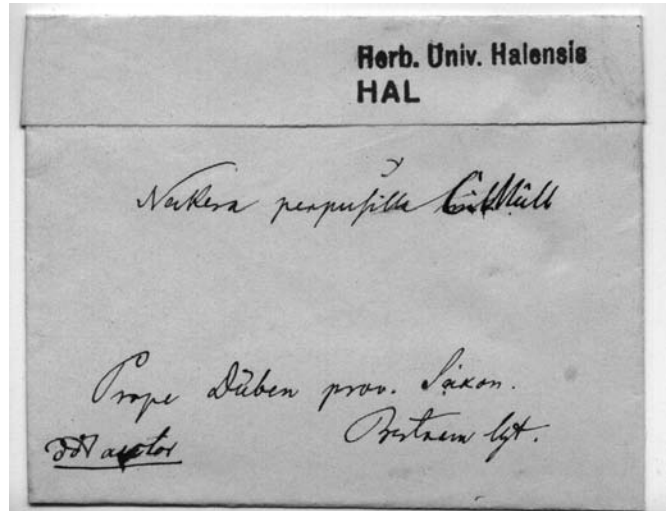 Herb. Univ. Halensis
HAL
Neckera perpusilla C. Müll
Prope Düben prov. Saxon.
Bertram lgt.
ddt autor